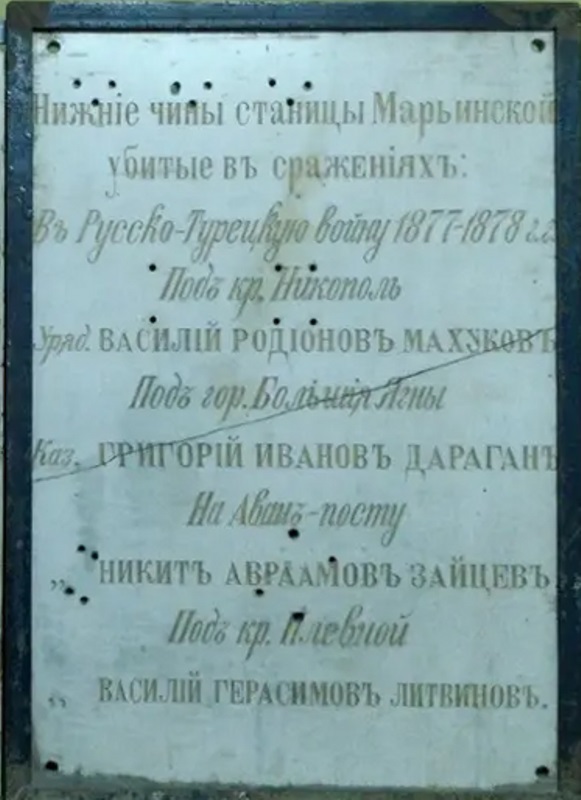 Нижніе чины станицы Марьинской
убитые въ сраженіяхъ:
Въ Русско-Турецкую войну 1877-1878 г.г.
Подъ кр. Никополь
Уряд. ВАСИЛІЙ РОДІОНОВЪ МАХУКОВЪ
Подъ гор. Большія Ягны
Каз. ГРИГОРІЙ ИВАНОВЪ ДАРАГАНЪ
На Аванъ-посту
„ НИКИТЪ АВРААМОВЪ ЗАЙЦЕВЪ
Подъ кр. Плевной
„ ВАСИЛІЙ ГЕРАСИМОВЪ ЛИТВИНОВЪ.